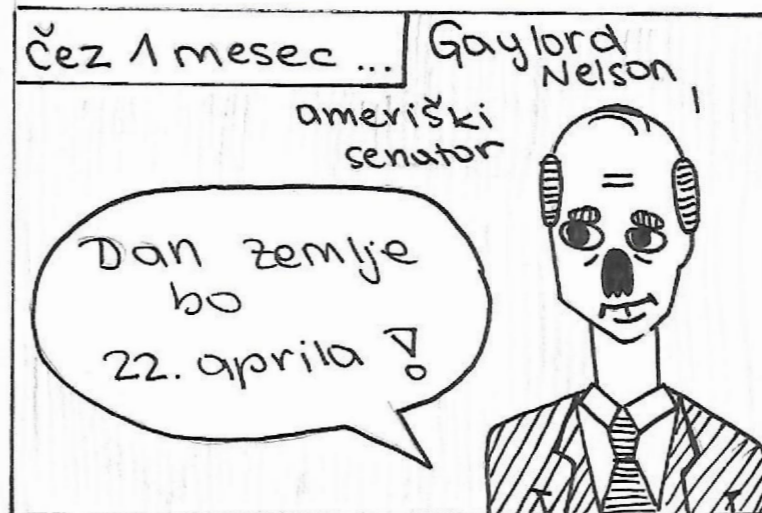 Čez 1 mesec ...
Gaylord
Nelson,
ameriški
senator
Dan zemlje
bo
22. aprila!